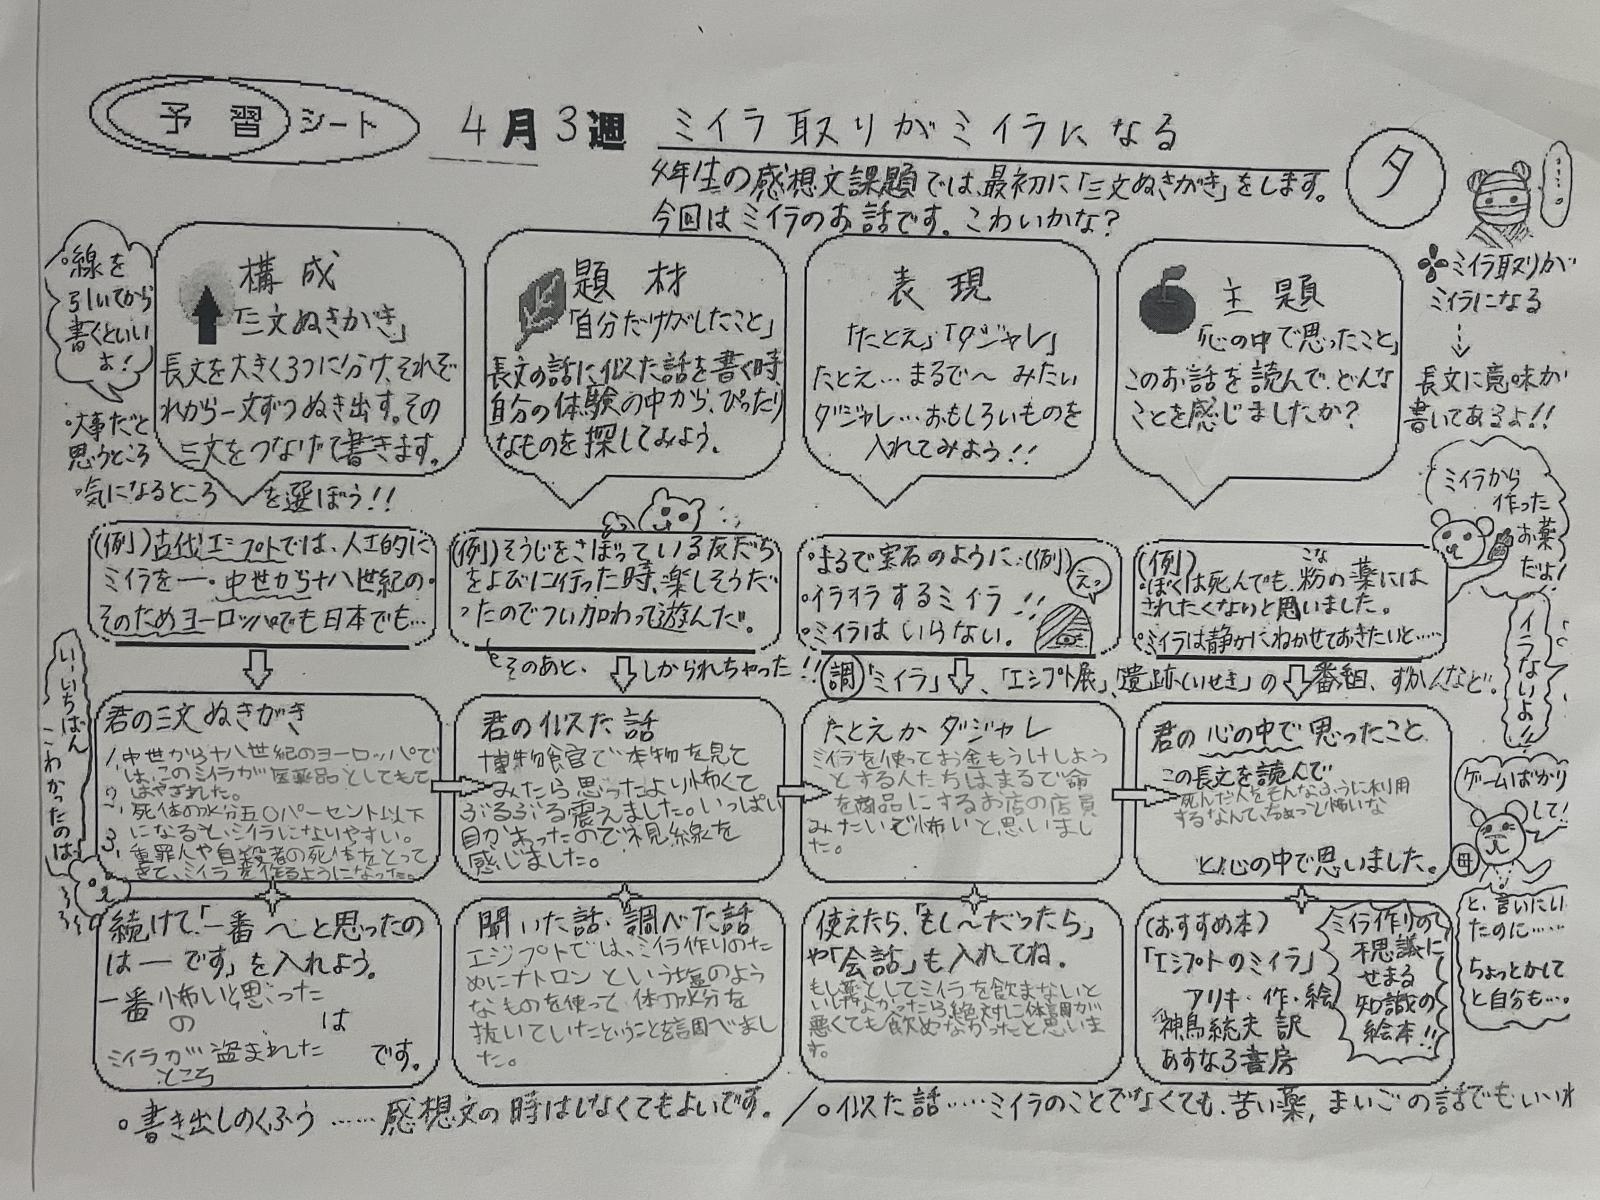 予習シート
4月3週
ミイラ取りがミイラになる
タ
4年生の感想文課題では、最初に「三文ぬきがき」をします。
今回はミイラのお話です。こわいかな?
・線を
引いてから
書くといい
よ!
構成
「三文ぬきがき」
長文を大きく3つに分け、それぞ
れから一文ずつぬき出す。その
三文をつなげて書きます。
・大事だと
思うところ
・気になるところ
を選ぼう!!
題材
「自分だけがしたこと」
長文の話に似た話を書く時、
自分の体験の中から、ぴったり
なものを探してみよう。
表現
「たとえ」「ダジャレ」
たとえ…まるで〜みたい
ダジャレ…おもしろいものを
入れてみよう!!
主題
「心の中で思ったこと」
このお話を読んで、どんな
ことを感じましたか?
ミイラ取りが
ミイラになる
長文に意味が
書いてあるよ!!
ミイラから
作った
お薬
だよ!
(例)古代エジプトでは、人工的に
ミイラを一・中世から十八世紀の・
そのためヨーロッパでも日本でも…
(例)そうじをさぼっている友だち
をよびに行った時、楽しそうだ
ったのでつい加わって遊んだ。
そのあと、しかられちゃった!!
・まるで宝石のように…(例)
・イライラするミイラ!!
・ミイラはいらない。
えっ
(例)
・ぼくは死んでも、粉の薬には
こな
されたくないと思いました。
・ミイラは静かにねかせておきたいと……
調「ミイラ」、「エジプト展」、「遺跡(いせき)」の番組、ずかんなど。
イラないよ!!
いちばん
こわかったのは
君の三文ぬきがき
1.中世から十八世紀のヨーロッパで
は、このミイラが医薬品としてもて
はやされた。
2.死体の水分五〇パーセント以下
になると、ミイラになりやすい。
3.重罪人や自殺者の死体をとって
きて、ミイラを作るようになった。
君の似た話
博物食官で本物を見て
みたら思ったより怖くて
ぶるぶる震えました。いっぱい
目があったので視線を
感じました。
たとえかダジャレ
ミイラを使ってお金もうけしよう
とする人たちはまるで命
を商品にするお店の店員
みたいで怖いと思いまし
た。
君の心の中で思ったこと
この長文を読んで
死んだ人をそんなふうに利用
するなんて、ちょっと怖いな
と心の中で思いました。
ゲームばかり
して!
母
と、言いたい
たのに……
ちょっとかして
と自分も…。
続けて、「一番〜と思ったの
は—です」を入れよう。
一番怖いと思った
のは
ミイラが盗まれた
ところ
です。
聞いた話、調べた話
エジプトでは、ミイラ作りのた
めにナトロンという塩のよう
なものを使って体の水分を
抜いていたということを調べまし
た。
使えたら、「もし〜だったら」
や「会話」も入れてね。
もし薬としてミイラを飲まないと
いけなかったら絶対に体調が
悪くても飲めなかったと思いま
す。
(おすすめ本)
「エジプトのミイラ」
アリキ・作・絵
神鳥統夫 訳
あすなろ書房
ミイラ作りの
不思議に
せまる
知識の
絵本!!
・書き出しのくふう……感想文の時はしなくてもよいです。/・似た話……ミイラのことでなくても、苦い薬、まいごの話でもいい